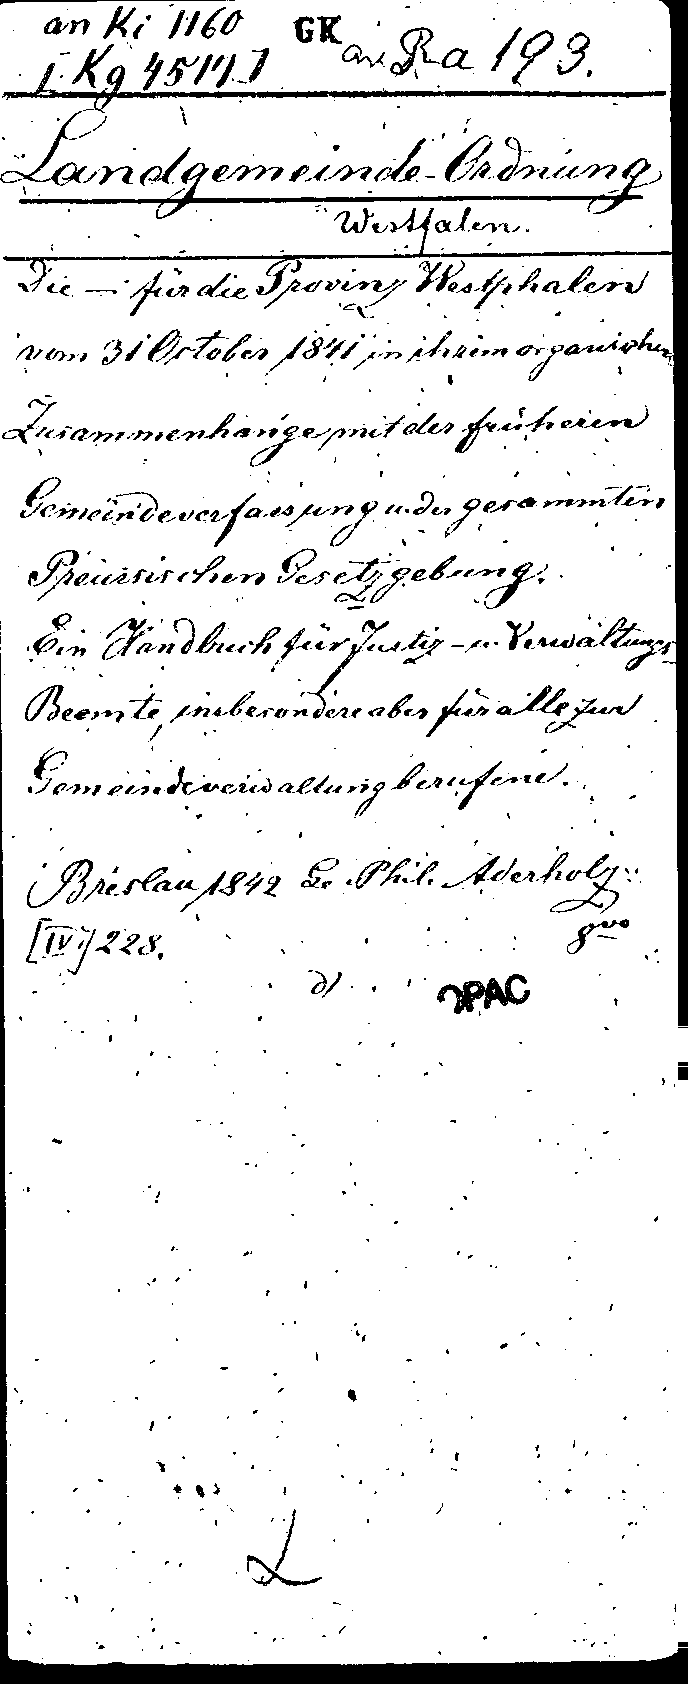 an Ki 1160 GK an Ra 193.
[Kg 4517.]
Landgemeinde-Ordnung
Westfalen.
Die — für die Provinz Westphalen
vom 31 October 1841 in ihrem organischen
Zusammenhange mit der früheren
Gemeindeverfassung u. der gesammten
Preussischen Gesetzgebung.
Ein Handbuch für Justiz- u. Verwaltungs-
Beamte, insbesondere aber für alle zur
Gemeindeverwaltung berufene.
Breslau 1842 Phil. Aderholz
8vo
[IV] 228.
OPAC